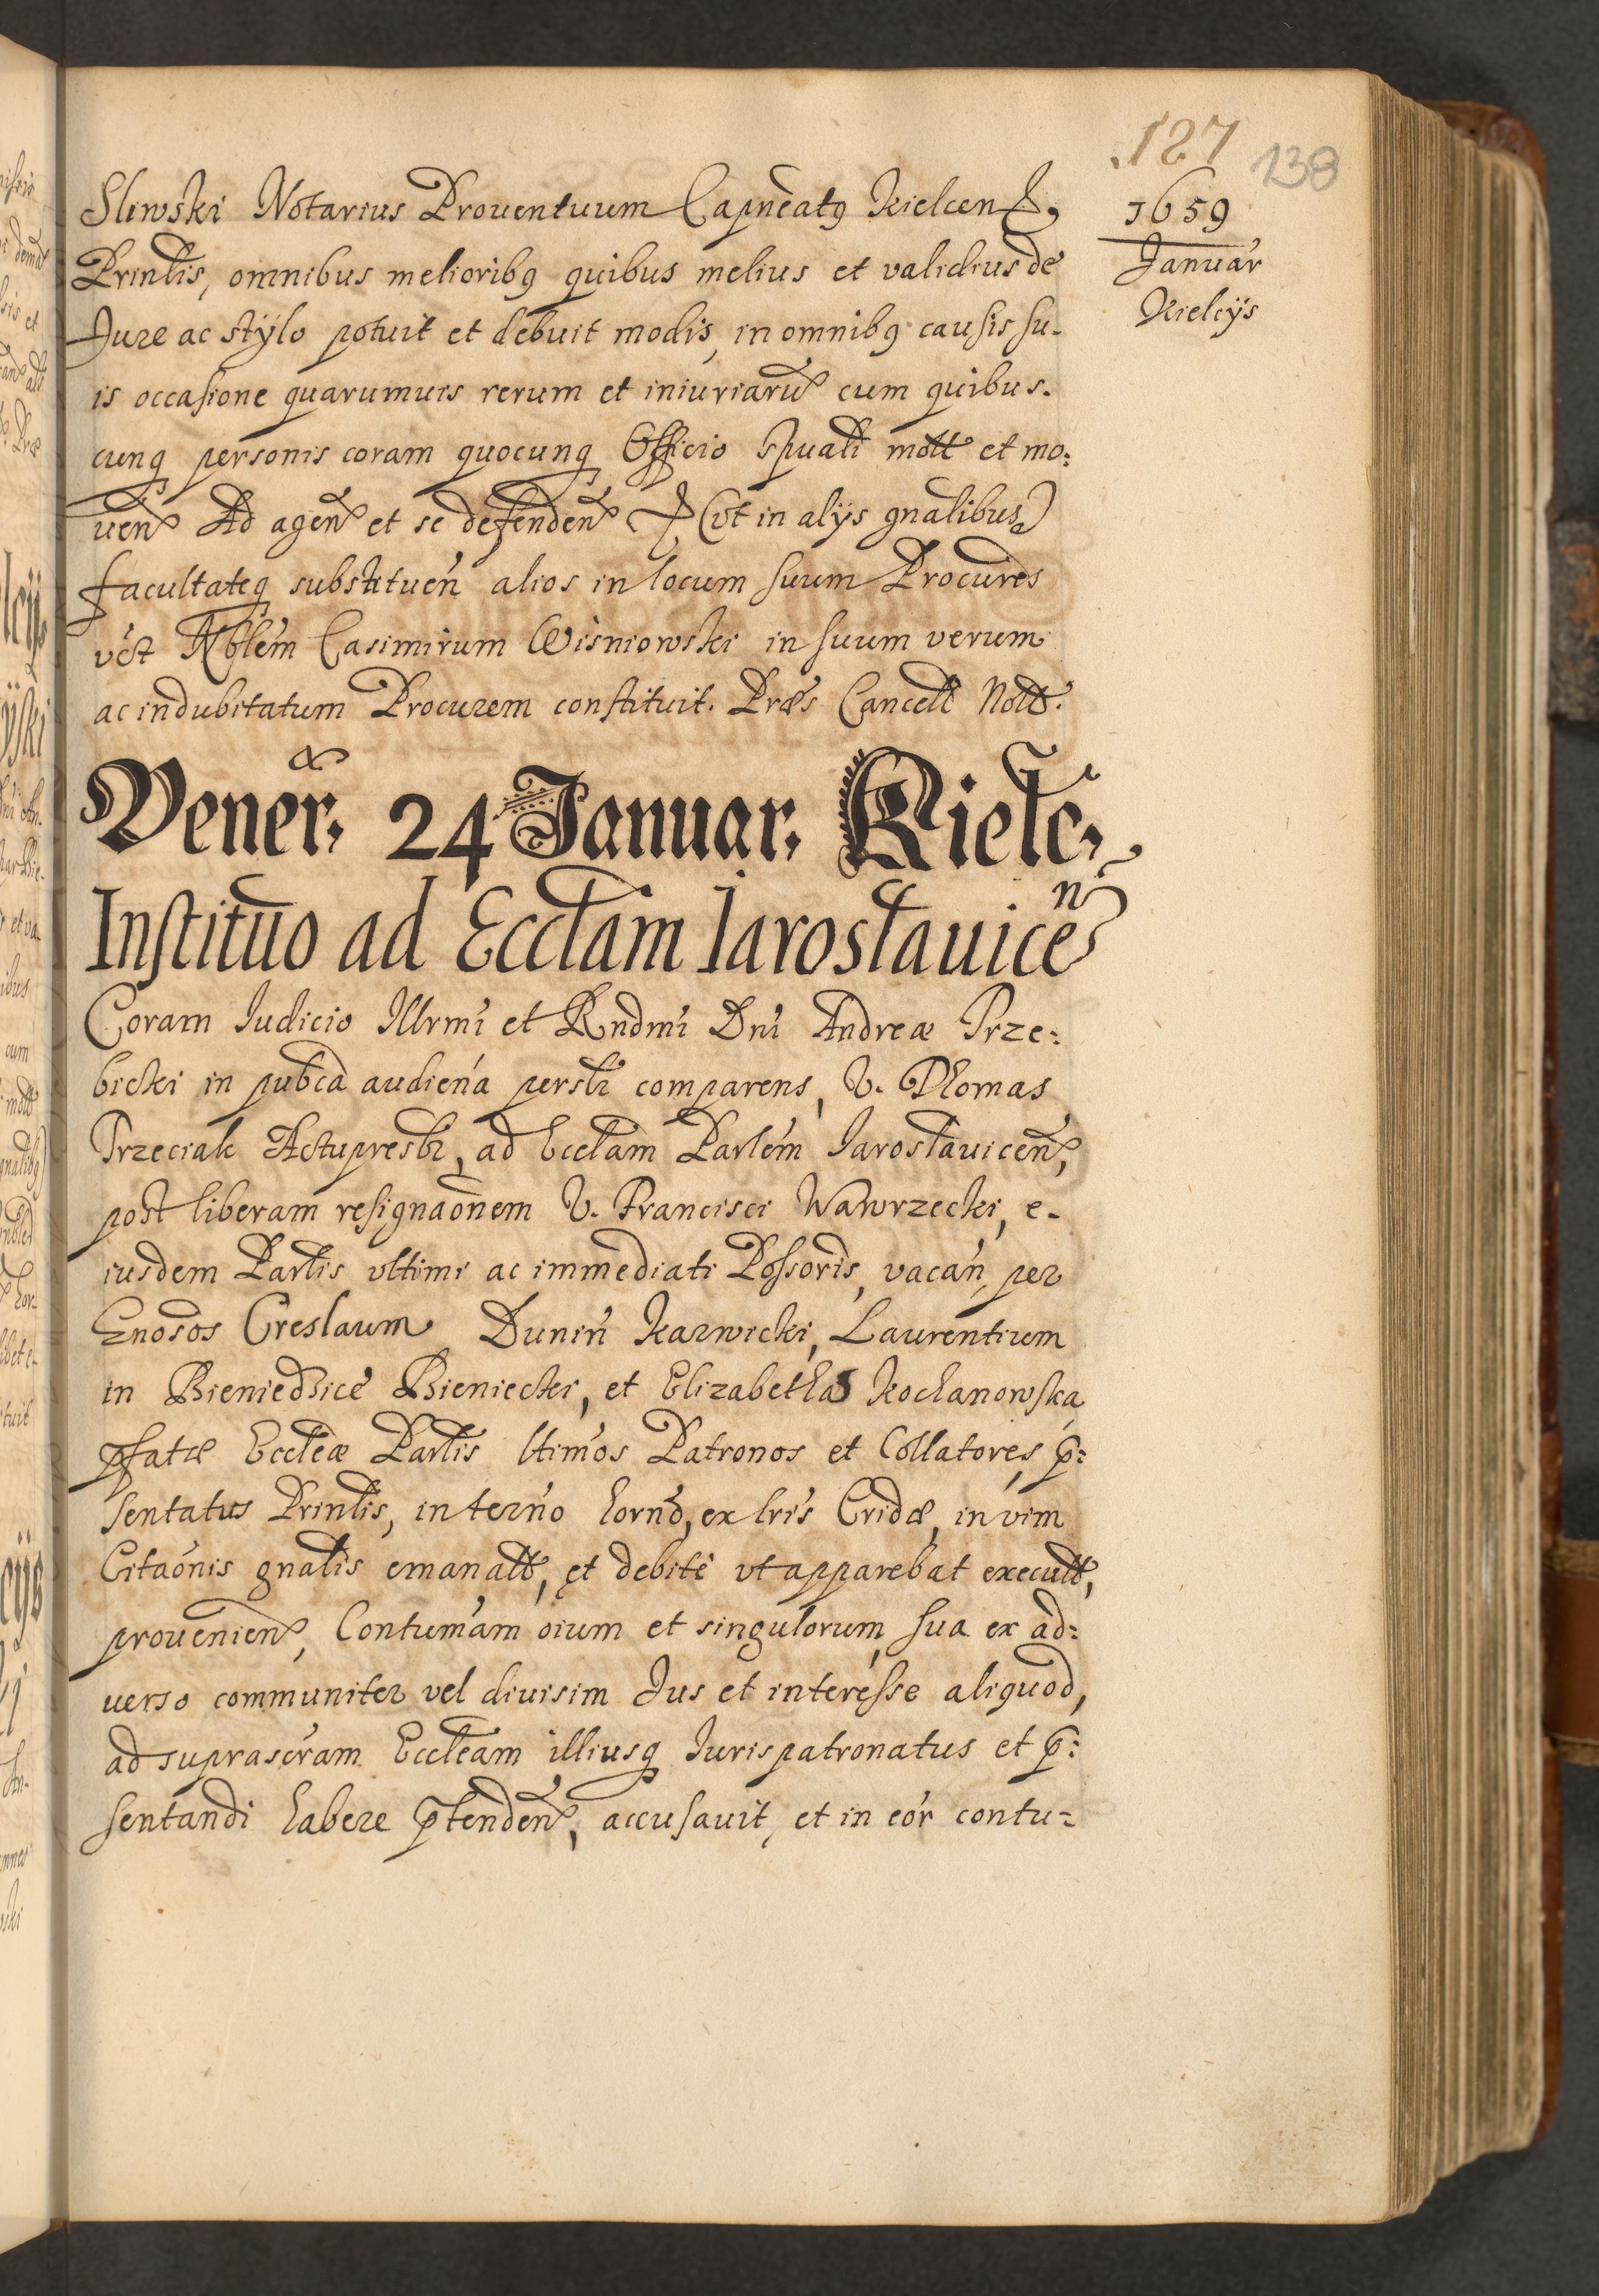 127 138
1659
Januar
Kielcys
Sliwski Notarius Prouentuum Capneatq Kielcen &,
Prinlis, omnibus melioribq quibus melius et validius de
Jure ac stÿlo potuit et debuit modis, in omnibq causis su-
is occasione quarumuis rerum et iniuriaru cum quibus.
cunq personis coram quocunq Officio Spuali mott et mo:
uen Ad agen et se defenden & (vt in alÿs gnalibus)
facultateq substituen alios in locum suum Procures
vct Nblem Casimirum Wisniowski in suum verum
ac indubitatum Procurem constituit. Præs Cancell Nott.
Vener. 24 Januar. Kielc.
Instituo ad Ecclam Iaroslauicen
Coram Iudicio Illrmi et Rndmi Dni Andreæ Trze:
bicki in pubca audiena persli comparens, V. Thomas
Trzeciak Actupresbr, ad Ecclam Parlem Iaroslauicen,
post liberam resignaonem V. Francisci Wawrzecki, e-
iusdem Parlis vltimi ac immediati Possoris, vacan, per
Gnosos Creslaum Dunin Karwicki, Laurentium
in Bieniedzice Bieniecki, et Elizabetha Kochanowska
pfatæ Eccleæ Parlis ltimos Patronos et Collatores, p:
sentatus Prinlis, in terno horno, ex lris Cridæ, in vim
Citaonis gnalis emanatt, et debite vt apparebat executt,
prouenien, Contumam oium et singulorum, sua ex ad:
uerso communiter vel diuisim Jus et interesse aliquod,
ad suprascram Eccleam illiusq Iurispatronatus et p:
sentandi habere ptenden, accusauit, et in eor contu-